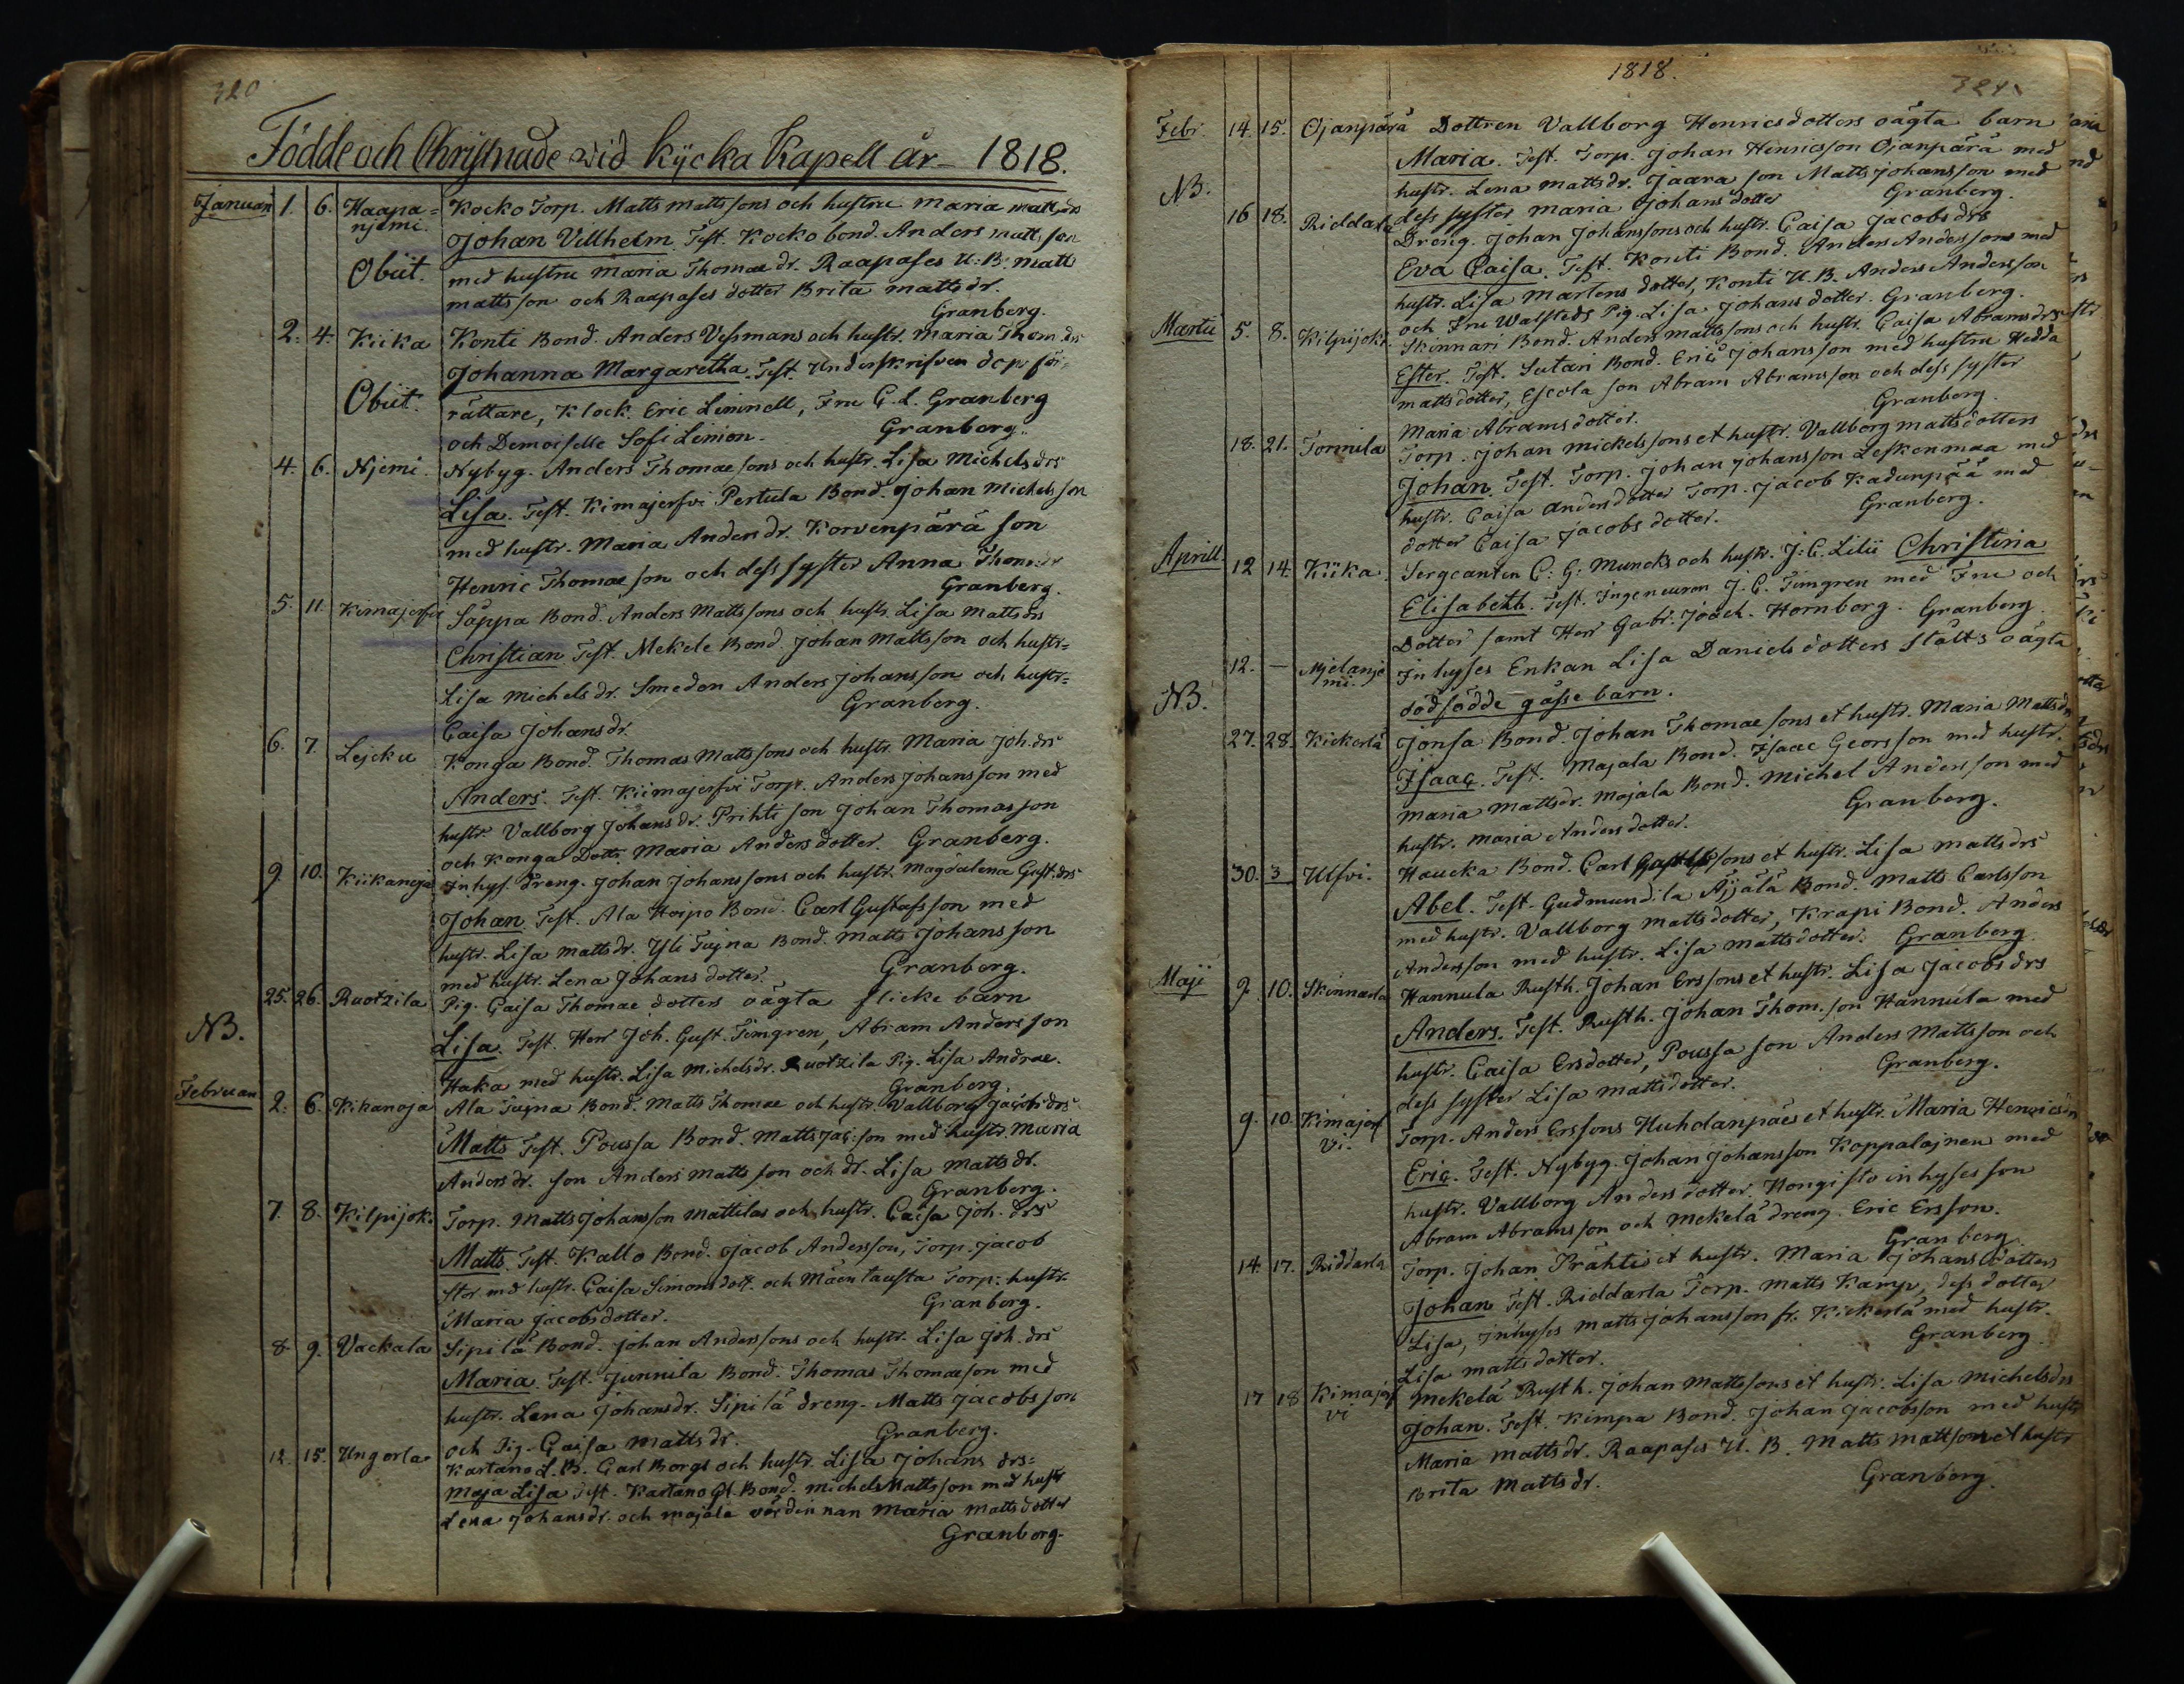 320
Födde och Christnade wid Kycka Kapell år 1818.
Januari 1. 6. Haapanjemi. Kocko Torp. Matts Mattssons och hustru Maria Mattsdrs
Johan Villhelm. Test. Kocko bond. Anders Mattsson
Obiit. med hustru Maria Thomae dr. Raapases U: B: Matts
Mattsson och Raapases dotter Brita Matts dr.
Granberg.
2. 4. Kiika Konti Bond. Anders Vessmans och hustr. Maria Thom. drs
Johanna Margaretha. Test. Underskrifven dop för-
Obiit. rättare, Klock. Eric Limnell, Fru C. L. Granberg
och Demoiselle Sofi Limon. Granberg.
4. 6. Njemi. Nybyg. Anders Thomae sons och hustr. Lisa Michelsdrs
Lisa. Test. Kimajerfvi Pertula Bond. Johan Michelsson
med hustr. Maria Anders dr. Korvenpärä son
Henric Thomae son och dess syster Anna Thomedr
Granberg.
5. 11. Kimajerfvi Säppa Bond. Anders Mattssons och hustr. Lisa Mattsdrs
Christian Test. Mekele Bond. Johan Mattsson och hustr=
Lisa Michels dr. Smeden Anders Johansson och hustr=
Caisa Johansdr. Granberg.
6. 7. Lejcku Konga Bond. Thomas Mattssons och hustr. Maria Joh. drs
Anders. Test. Kiimajerfvi Torp. Anders Johansson med
hustr. Vallborg Johans dr. Prihti son Johan Thomasson
och Konga Dottr. Maria Anders dotter. Granberg.
9 10. Kiikanoja Inhys. dreng. Johan Johanssons och hustr. Magdalena Gust. drs
Johan. Test. Ala Hoipo Bond. Carl Gustafsson med
hustr. Lisa Matts dr. Yli Tujna Bond. Matts Johansson
med hustr. Lena Johans dotter. Granberg.
25. 26. Ruotzila Pig. Caisa Thomae dotters oägta flicke barn
NB. Lisa. Test. Herr Joh. Gust. Timgren, Abram Andersson
Haka med hustr. Lisa Michelsdr. Ruotzila Pig. Lisa Andrae.
Granberg.
Februari 2. 6. Kikanoja Ala Tujna Bond. Matts Thomae och hustr. Vallborg Jacobs drs
Matts Test. Poussa Bond. Matts Jac. son med hustr. Maria
Anders dr. son Anders Mattsson och dr. Lisa Matts dr.
Granberg.
7. 8. Kilpijok. Torp. Matts Johansson Mattilas och hustr. Caisa Joh. drs
Matts. Test. Kallo Bond. Jacob Andersson, Torp. Jacob
Stor med hustr. Caisa Simonsdott. och Mäen tausta Torp: hustr.
Maria Jacobsdotter. Granberg.
8. 9. Vackala Sipilä Bond. Johan Anderssons och hustr. Lisa Joh. drs
Maria. Test. Junnila Bond. Thomas Thomaeson med
hustr. Lena Johansdr. Sipilä dreng. Matts Jacobsson
och Pig. Caisa Matts dr. Granberg.
12. 15. Ungorla Kartano L. B. Carl Borgs och hustr. Lisa Johans drs=
Maja Lisa Test. Kartano Gl. Bond. Michels Mattsson med hustr
Lena Johansdr. och Majala värdinnan Maria Mattsdotter
Granberg.
1818.
Febr. 14. 15. Ojanpärä Dottren Vallborg Henricsdotters oägta barn
Maria. Test. Torp. Johan Henricsson Ojanpärä med
NB. hustr. Lena Matts dr. Jaara son Matts Johansson med
dess syster Maria Johans dotter Granberg.
16 18. Riddala Dreng. Johan Johanssons och hustr. Caisa Jacobs drs
Eva Caisa. Test. Konti Bond. Anders Anderssons med
hustr. Lisa Martens dotter, Konti U. B. Anders Andersson
och Fru Walsteds Pig. Lisa Johans dotter. Granberg.
Martii 5. 8. Kilpijoki. Skinnari Bond. Anders Mattssons och hustr. Caisa Abramsdrs
Ester. Test. Sutari Bond. Eric Johansson med hustru Hedda
Mattsdotter, Escola son Abram Abramsson och dess syster
Maria Abrams dotter. Granberg.
18. 21. Tormila Torp. Johan Mickelssons et hustr. Vallborg Mattsdotters
Johan. Test. Torp. Johan Johansson Leskenmaa med
hustr. Caisa Andersdotter Torp. Jacob Kadunpää med
dotter Caisa Jacobs dotter. Granberg.
Aprill. 12 14. Kiika. Sergeanten C: G: Muncks och hustr. J: C. Lilii Christina
Elisabeth. Test. Ingeneuren J. C. Timgren med Fru och
Dotter samt Herr Gabr. Joach. Hornborg. Granberg.
12. — Mjelanjemi. Inhyses Enkan Lisa Daniels dotters Stålts oägta
NB. dödfödde gosse barn.
27. 28. Kickerlä Jonsa Bond. Johan Thomae sons et hustr. Maria Mattsdrs
Isaac. Test. Majala Bond. Isaac Georsson med hustr.
Maria Mattsdr. Majala Bond. Michel Andersson med
hustr. Maria Anders dotter. Granberg.
30. 3 Ulfvi. Haucka Bond. Carl sons et hustr. Lisa Mattsdrs
Abel. Test. Gudmundila Äijälä Bond. Matts Carlsson
med hustr. Vallborg Mattsdotter, Krapi Bond. Anders
Andersson med hustr. Lisa Mattsdotter. Granberg.
Maji 9 10. Skinnarla Hannula Rusth. Johan Erssons et hustr. Lisa Jacobs drs
Anders. Test. Rusth. Johan Thom. son Hannula med
hustr. Caisa Ersdotter, Poussa son Anders Mattsson och
dess syster Lisa Mattsdotter. Granberg.
9. 10. Kimajerfvi. Torp. Anders Erssons Huhdanpäes et hustr. Maria Henricsdrs
Eric. Test. Nybyg. Johan Johansson Koppalojnen med
hustr. Vallborg Anders dotter. Kongisto inhyses son
Abram Abramsson och Mekelä dreng. Eric Ersson.
Granberg.
14. 17. Riddarla Torp. Johan Prähtis et hustr. Maria Johans Dotters
Johan Test. Riddarla Torp. Matts Kamp, dess dotter
Lisa, Inhyses Matts Johansson fr. Kickerlä med hustr.
Lisa Mattsdotter. Granberg
17 18 Kimajerfvi Mekelä Rusth. Johan Mattssons et hustr. Lisa Michelsdrs
Johan. Test. Kimpa Bond. Johan Jacobsson med hustr
Maria Mattsdr. Raapases U. B. Matts Mattsson et hustr
Brita Matts dr. Granberg.